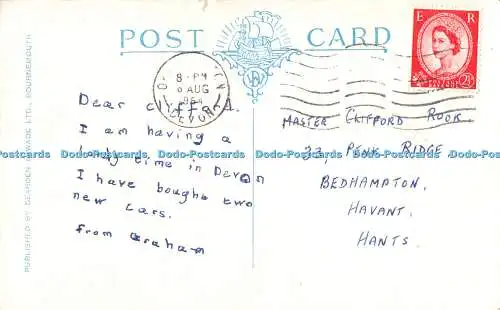 POST CARD
E R
POSTAGE REVENUE
2½D
8-PM
AUG
DEVON
Dear clyfford.
I am having a
lovely time in Devon
I have boughe two
new cars.
from Graham
MASTER CLIFFORD ROOK
33, PENK RIDGE
BEDHAMPTON,
HAVANT,
HANTS.
PUBLISHED BY DEARDEN & WADE LTD., BOURNEMOUTH
Dodo-Postcards Dodo-Postcards Dodo-Postcards Dodo-Postcards Dodo-Postcards